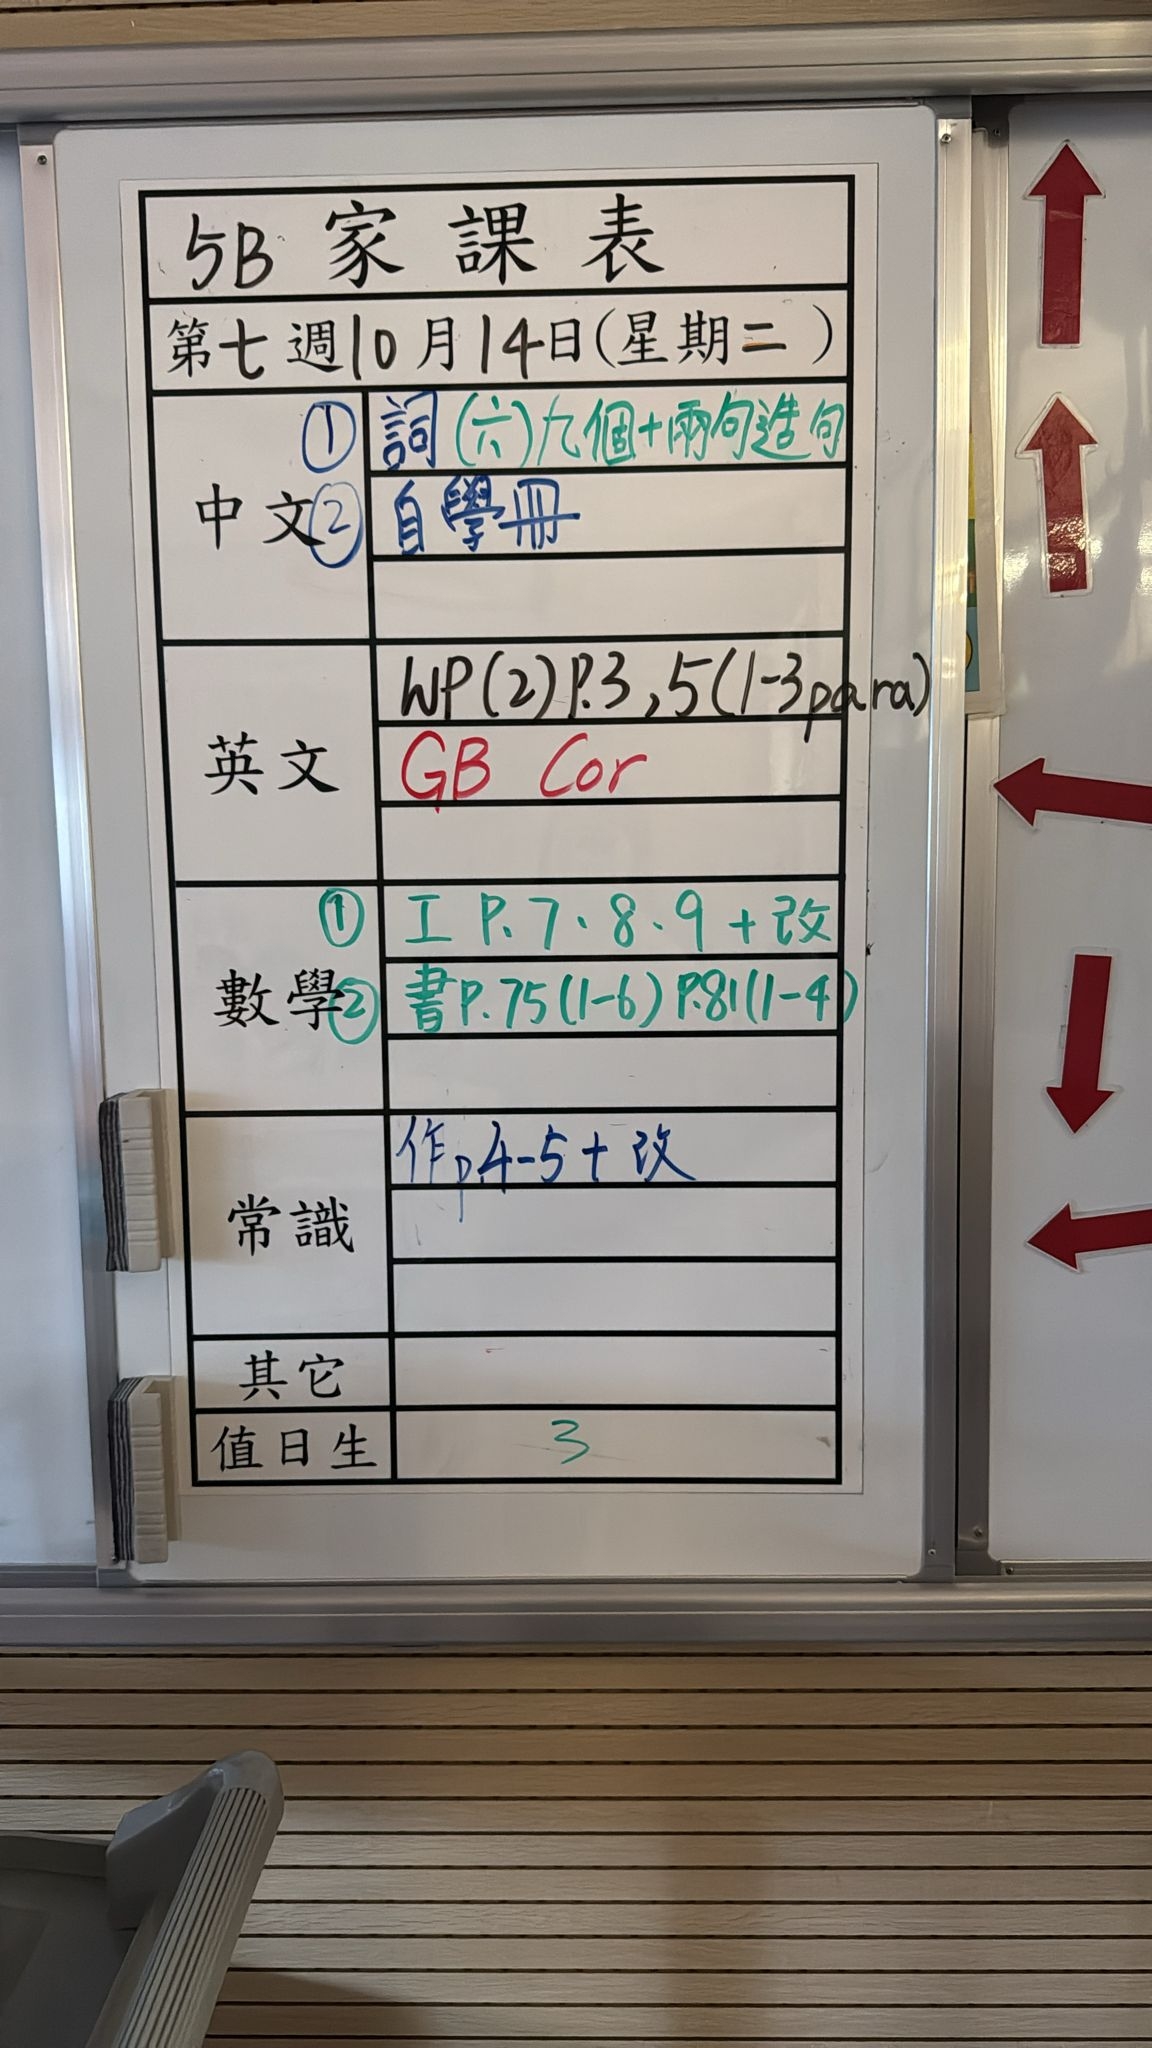 5B 家課表
第七週10月14日(星期二)
中文
① 詞(六)九個+兩句造句
② 自學冊
英文
WP(2)P.3,5(1-3para)
GB Cor
數學
① 工 P.7、8、9+改
② 書P.75(1-6) P.81(1-4)
常識
作p4-5+改
其它
值日生 3